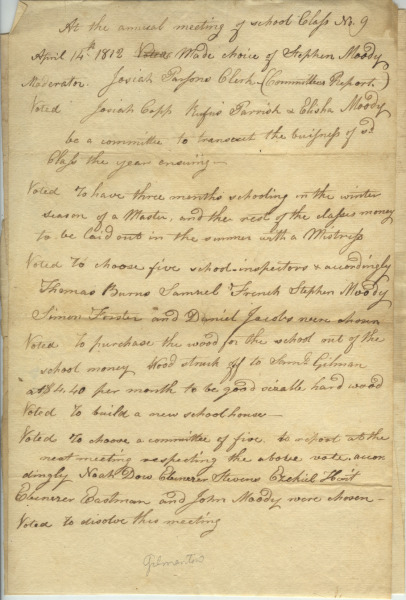 At the annual meeting of school Class No. 9
April 14th 1812 Voted Made choice of Stephen Moody
Moderator. Josiah Parsons Clerk (Committees Report)
Voted Josiah Copp Rufus Parrish & Elisha Moody
be a committee to transact the buisness of sd
Class the year ensuing—
Voted To have three months schooling in the winter
season of a Master, and the rest of the classes money
to be laid out in the summer with a Mistress
Voted To choose five school-inspectors & accordingly
Thomas Burns Samuel French Stephen Moody
Simon Forster and Daniel Jacobs were chosen
Voted to purchase the wood for the school out of the
school money Wood struck off to Saml. Gilman
at $4.40 per month to be good sizable hard wood
Voted To build a new schoolhouse—
Voted To choose a committee of five, to report at the
next meeting respecting the above vote, accor
dingly Noah Dow Ebenezer Stevens Ezekiel Hoit
Ebenezer Eastman and John Moody were chosen—
Voted to disolve this meeting
Gilmanton